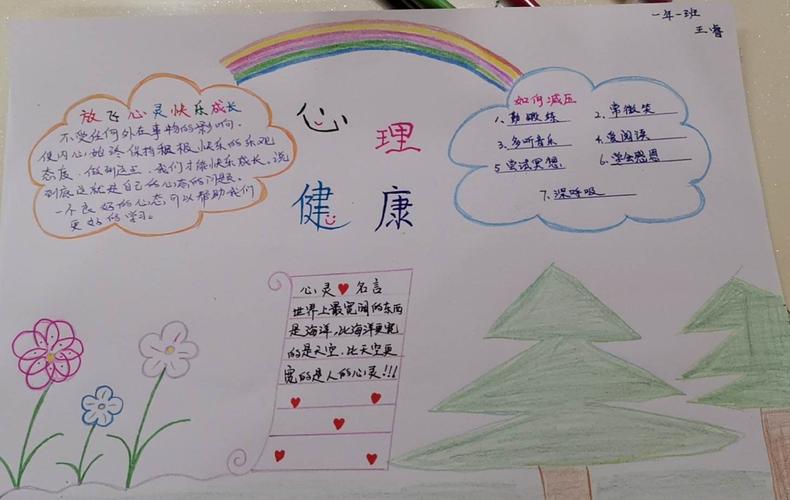 一年一班
王睿
放飞心灵快乐成长
不受任何外在事物的影响.
使内心始终保持积极、快乐的乐观
态度、做到这些,我们才能快乐成长,说
到底这就是自己的心态的问题。
一个良好的心态可以帮助我们
更好的学习。
心理
健康
如何减压
1、勤锻炼
2、常微笑
3、多听音乐
4、爱阅读
5、尝试冥想
6、学会感恩
7、深呼吸
心灵名言
世界上最宽阔的东西
是海洋,比海洋更宽
的是天空,比天空更
宽的是人的心灵!!!